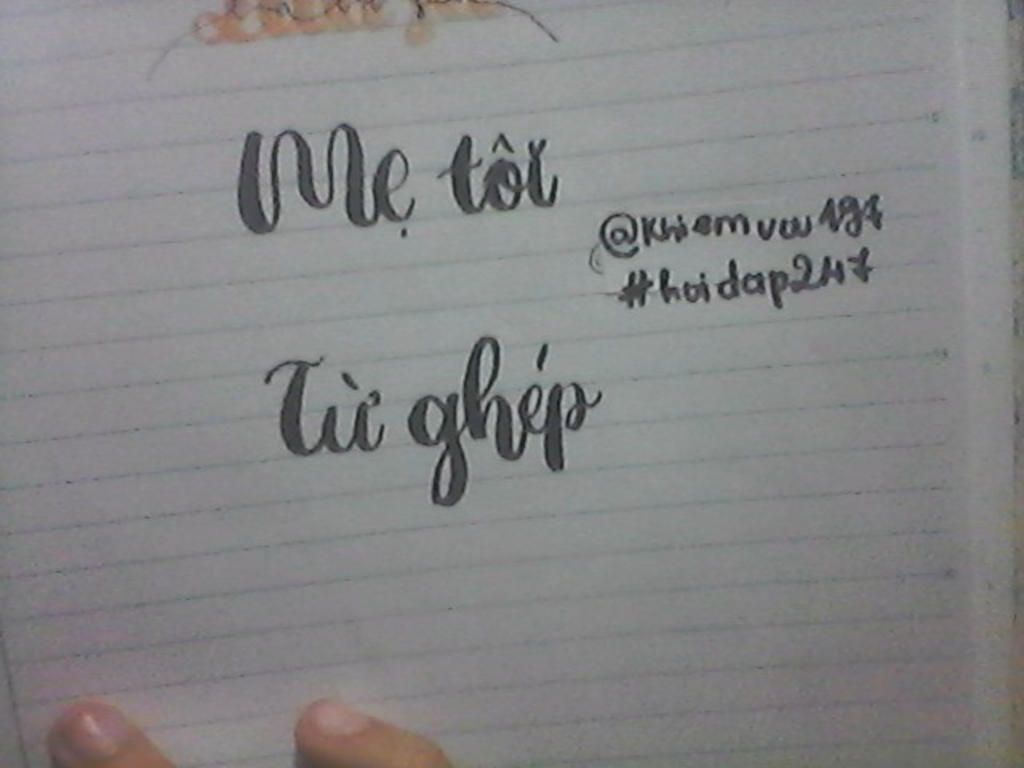 Mẹ tôi
@khiemvuu191
#hoidap247
Từ ghép